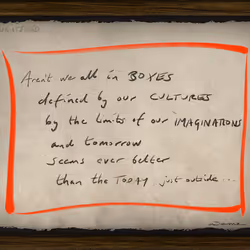 Aren't we all in BOXES
defined by our CULTURES
by the limits of our IMAGINATIONS
and tomorrow
seems ever better
than the TODAY just outside...